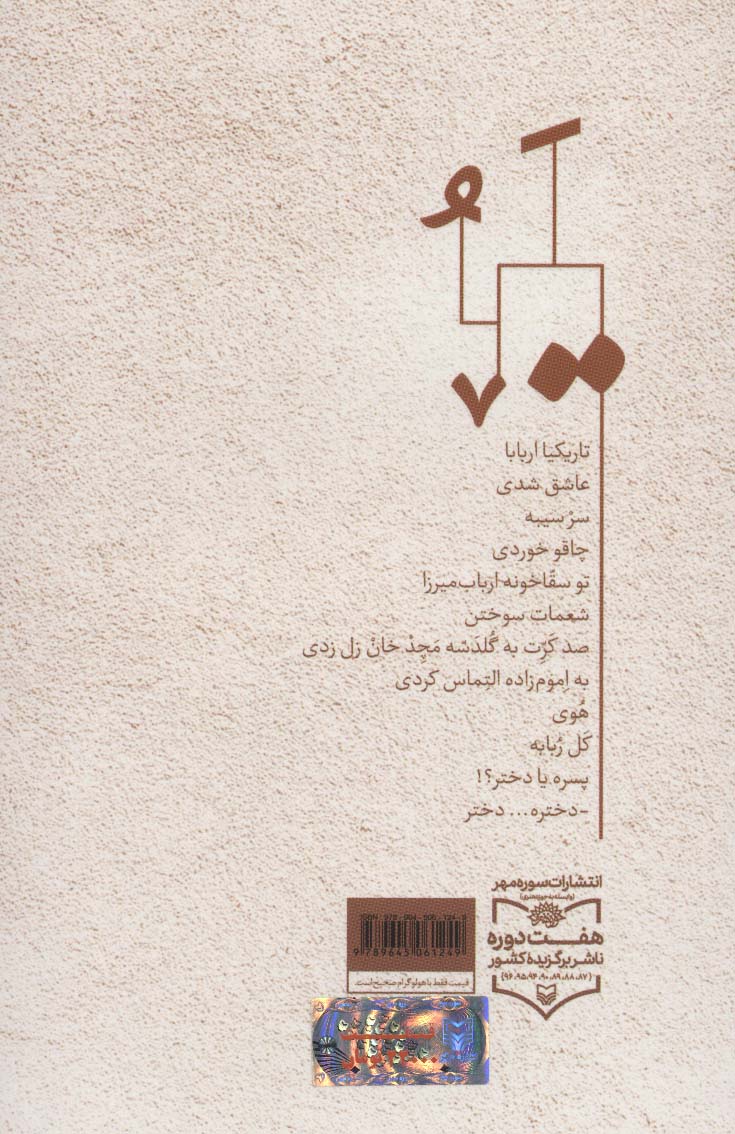 تاریکیا اربابا
عاشق شدی
سرْ سیبه
چاقو خوردی
تو سقّاخونه ارباب‌میرزا
شعمات سوختن
صد کَرِّت به گُلدَسّه مَچِدْ خانْ زل زدی
به اِموم‌زاده التِماس کَردی
هُوی
کَل رُبابه
پسره یا دختر؟!
-دختره... دختر
انتشارات سوره مهر
(وابسته به حوزه هنری)
هفت دوره
ناشر برگزیدهٔ کشور
(۸۷، ۸۸، ۸۹، ۹۰، ۹۴، ۹۵، ۹۶)
9 789645 061249
قیمت فقط با هولوگرام صحیح است.